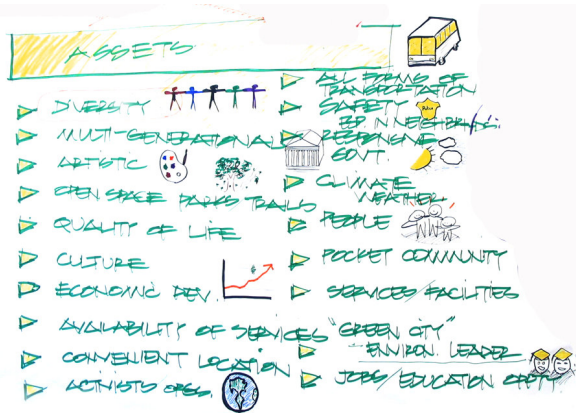 ASSETS
DIVERSITY
MULTI-GENERATIONAL
ARTISTIC
OPEN SPACE PARKS TRAILS
QUALITY OF LIFE
CULTURE
ECONOMIC DEV.
AVAILABILITY OF SERVICES
CONVENIENT LOCATION
ACTIVISTS ORGS.
ALL FORMS OF
TRANSPORTATION
SAFETY
ESP. IN NEIGHBRHDS.
RESPONSIVE
GOVT.
CLIMATE
WEATHER
PEOPLE
POCKET COMMUNITY
SERVICES/FACILITIES
"GREEN CITY"
ENVIRON. LEADER
JOBS/EDUCATION OPPTY